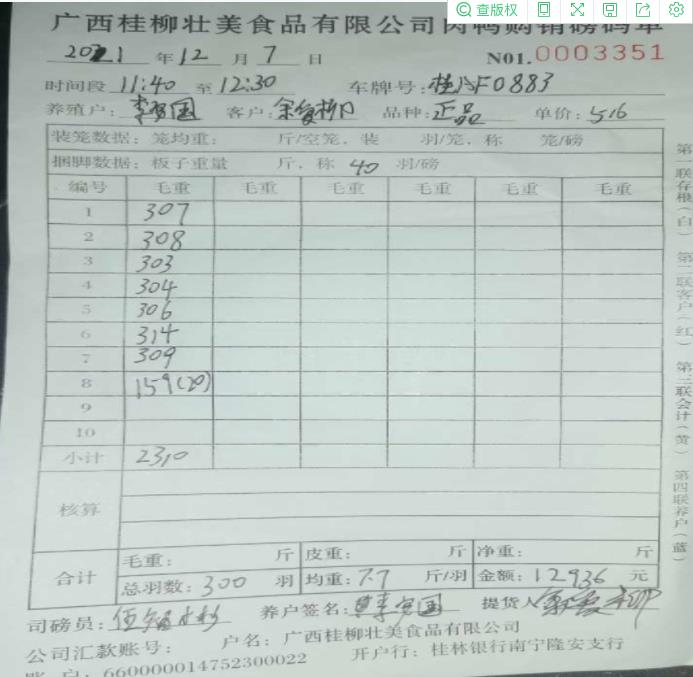 查版权
广西桂柳壮美食品有限公司肉鸭购销磅码单
2021 年 12 月 7 日 N01.0003351
时间段 11:40 至 12:30 车牌号: F0883
养殖户: 客户: 品种: 正品 单价: 5.6
装笼数据: 笼均重: 斤/空笼, 装 羽/笼, 称 笼/磅
捆脚数据: 板子重量 斤, 称 40 羽/磅
编号 毛重 毛重 毛重 毛重 毛重 毛重
1 307
2 308
3 303
4 304
5 306
6 314
7 309
8 159(20)
9
10
小计 2310
核算
合计
毛重: 斤 皮重: 斤 净重: 斤
总羽数: 300 羽 均重: 7.7 斤/羽 金额: 12936 元
司磅员: 养户签名: 提货人
公司汇款账号: 户名: 广西桂柳壮美食品有限公司
账 户: 660000014752300022 开户行: 桂林银行南宁隆安支行
第一联存根(白) 第二联客户(红) 第三联会计(黄) 第四联养户(蓝)